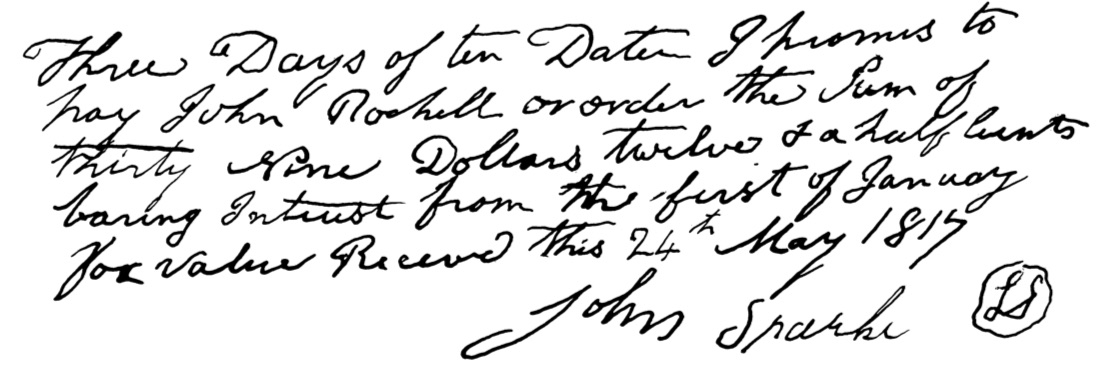 Three Days of ten Daten I promis to
pay John Rochell or order the Sum of
thirty Nine Dollars twelve & a half Cents
baring Intrust from the first of January
for value Receevd this 24th May 1817
John Sparke LS